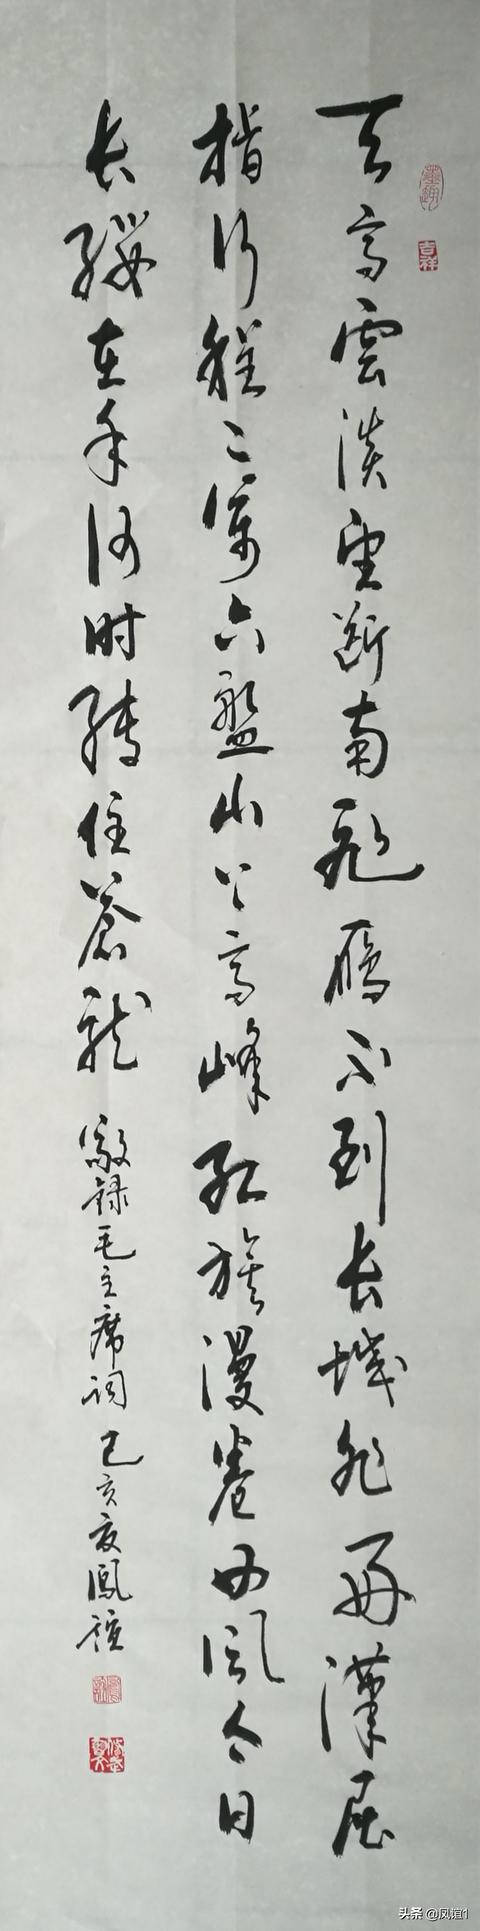 天高雲淡望断南飛雁不到长城非好漢屈
指行程二萬六盤山上高峰红旗漫卷西风今日
长缨在手何时缚住蒼龍 敬録毛主席词 己亥夏鳳谊
吉祥
头条 @凤谊1